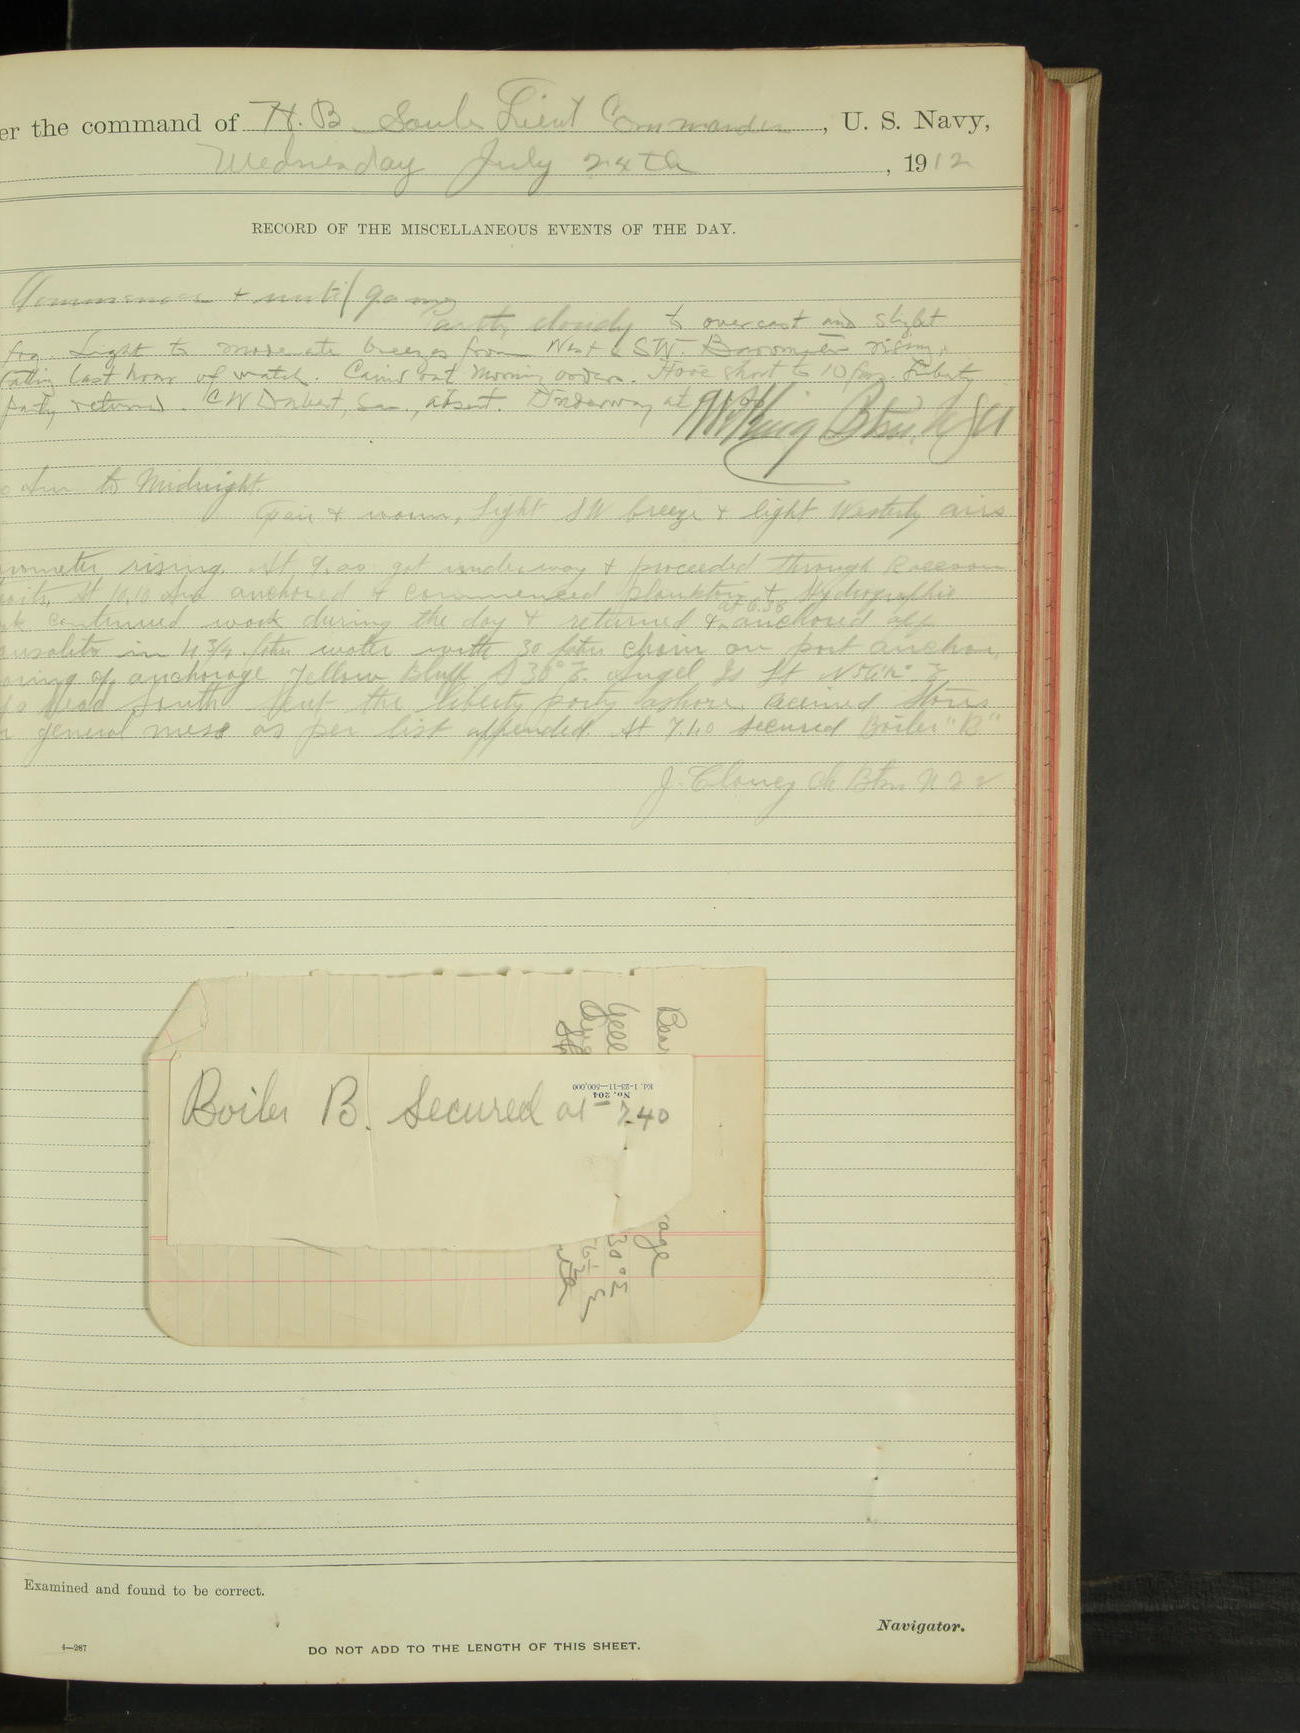 er the command of H. B. Soule Lieut Commander, U. S. Navy,
Wednesday July 24th, 1912
RECORD OF THE MISCELLANEOUS EVENTS OF THE DAY.
Commences & until 9 a m
Partly cloudy to overcast and slight
fog. Light to moderate breezes from West & SW. Barometer rising,
falling last hour of watch. Carried out morning orders. Hove short to 10 fms. Liberty
party returned. C W Sea., absent. Underway at
King Btsn. U S N
Am to Midnight.
Fair & warm, light SW breeze & light Westerly airs
ometer rising. At 9.00 got underway & proceeded through Raccoon
aits. At 10.10 Am anchored & commenced plankton & Hydrographic
rk continued work during the day & returned & at 6.38 anchored off
ausalito in 4 3/4 fthms water with 30 fthms chain on port anchor,
aring of anchorage Yellow Bluff S 30° E. Angel Is Lt
head South Sent the liberty party ashore, received stores
r general mess as per list appended. At 7.40 secured Boiler "B"
J. Clancy Ch Btsn U S N
Bea age
Yell 30° E
Boiler B. Secured at 7.40
No. 204
Ed. 1-23-11—500,000
Examined and found to be correct.
Navigator.
4—287
DO NOT ADD TO THE LENGTH OF THIS SHEET.